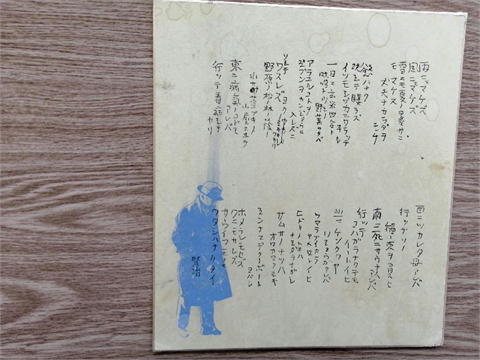 雨ニマケズ
風ニマケズ
雪ニモ夏ノ暑サニ
モマケズ
丈夫ナカラダヲ
慾ハナク
決シテ瞋ラズ
イツモシヅカニワラッテ
ヰル
一日ニ玄米四合ト
味噌ト少シノ野菜ヲタベ
アラユルコトヲ
ジブンヲカンジョウニ
入レズニ
ソシテ
ワスレズ
野原ノ松ノ林ノ蔭ノ
小屋ニヰテ
東ニ病気ノコドモ
アレバ
行ッテ看病シテ
ヤリ
西ニツカレタ母アレバ
行ッテソノ
稲ノ束ヲ負ヒ
南ニ死ニサウナ人アレバ
行ッテ
コハガラナクテモイヽトイヒ
北ニケンクヮヤ
ソショウガアレバ
ツマラナイカラ
ヤメロトイヒ
ヒドリノトキハ
ナミダヲナガシ
サムサノナツハ
オロオロアルキ
ミンナニデクノボート
ヨバレ
ホメラレモセズ
クニモサレズ
サウイフモノニ
ワタシハナリタイ
賢治